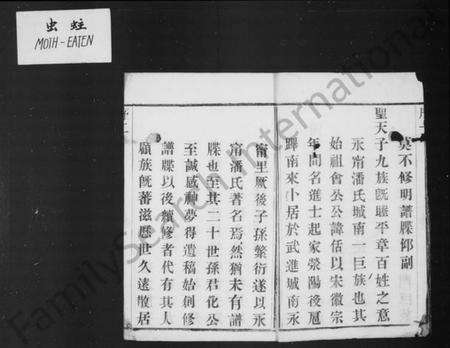 虫蛀
MOTH-EATEN
FamilySearch International
莫不修明譜牒抑副
聖天子九族既睦平章百姓之意
永甯潘氏城南一巨族也其
始祖會公公諱佸以宋徽宗
年間名進士起家滎陽後扈
蹕南來卜居於武進城南永
甯里厥後子孫繁衍遂以永
甯潘氏著名焉然猶未有譜
牒也至其二十世孫君化公
至誠感神夢得遺稿始創修
譜牒以後續修者代有其人
顧族既蕃滋歷世久遠散居